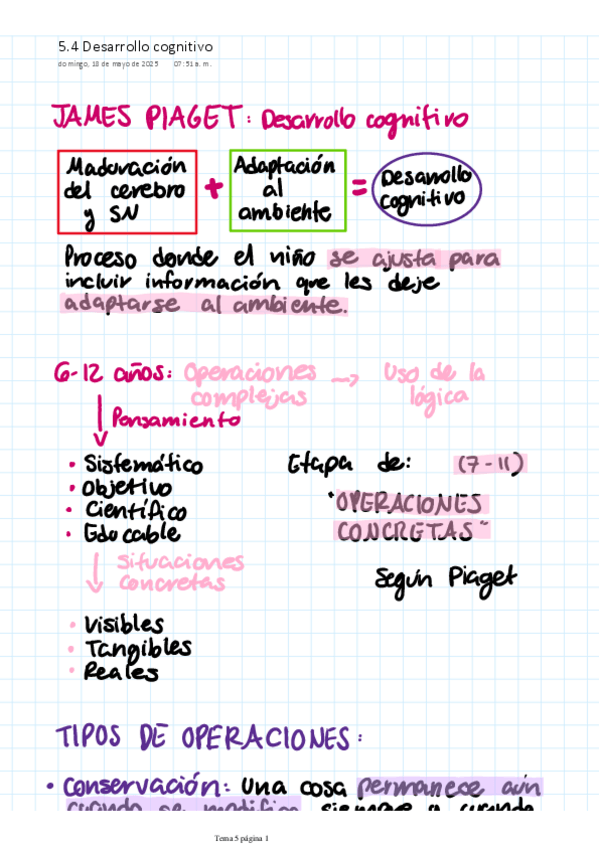 5.4 Desarrollo cognitivo
domingo, 18 de mayo de 2025 07:51 a. m.
JAMES PIAGET: Desarrollo cognitivo
Maduración
del cerebro
y SN
+
Adaptación
al
ambiente
=
Desarrollo
cognitivo
Proceso donde el niño se ajusta para
incluir información que les deje
adaptarse al ambiente.
6-12 años: Operaciones complejas → Uso de la lógica
Pensamiento
• Sistemático
• Objetivo
• Científico
• Educable
Situaciones
concretas
• Visibles
• Tangibles
• Reales
Etapa de: (7-11)
"OPERACIONES
CONCRETAS"
Según Piaget
TIPOS DE OPERACIONES:
• Conservación: Una cosa permanece aún
cuando se modifica siempre y cuando
Tema 5 página 1